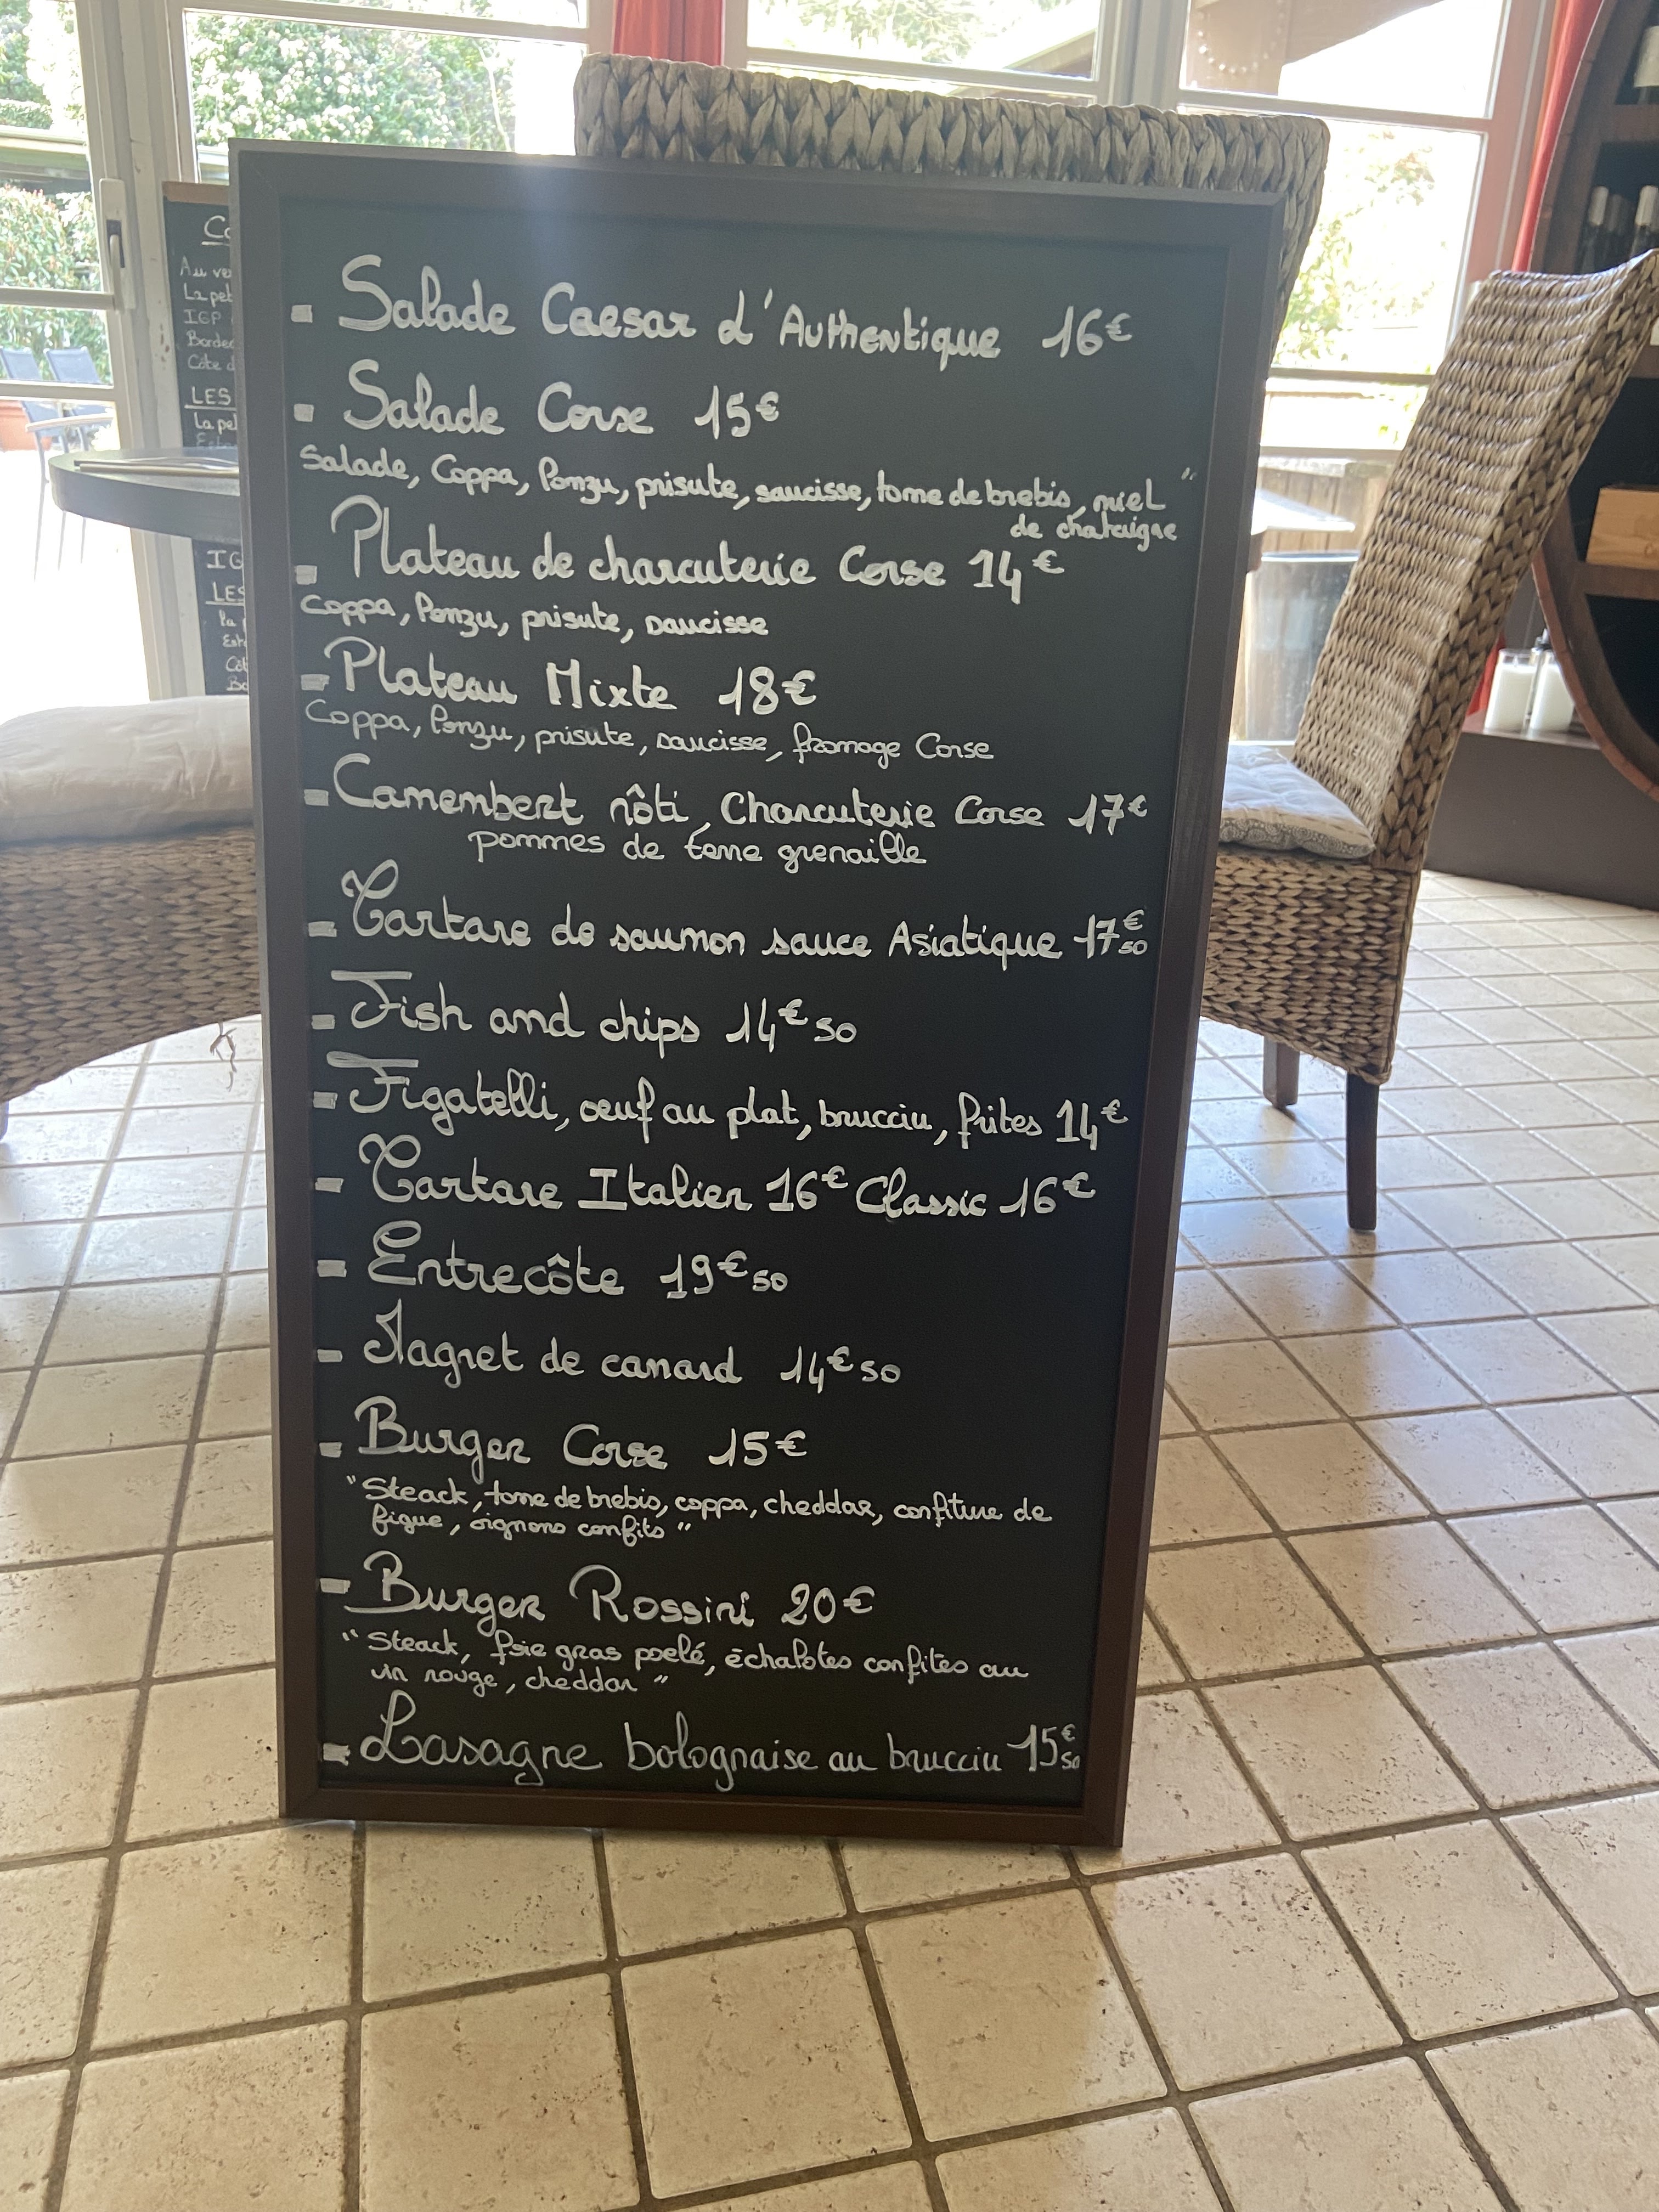 Salade Caesar d'Authentique 16€
Salade Corse 15€
Salade, Coppa, Ponzu, prisute, saucisse, tome de brebis, miel "
de chataigne
Plateau de charcuterie Corse 14€
Coppa, Ponzu, prisute, saucisse
Plateau Mixte 18€
Coppa, Ponzu, prisute, saucisse, fromage Corse
Camembert rôti, Charcuterie Corse 17€
pommes de terre grenaille
Tartare de saumon sauce Asiatique 17€50
Fish and chips 14€50
Figatelli, oeuf au plat, brucciu, frites 14€
Tartare Italien 16€ Classic 16€
Entrecôte 19€50
Magret de canard 14€50
Burger Corse 15€
"Steack, tome de brebis, coppa, cheddar, confiture de
figue, oignons confits"
Burger Rossini 20€
"Steack, foie gras poelé, échalotes confites au
vin rouge, cheddar"
Lasagne bolognaise au brucciu 15€50
Au
IGP
LES
LES